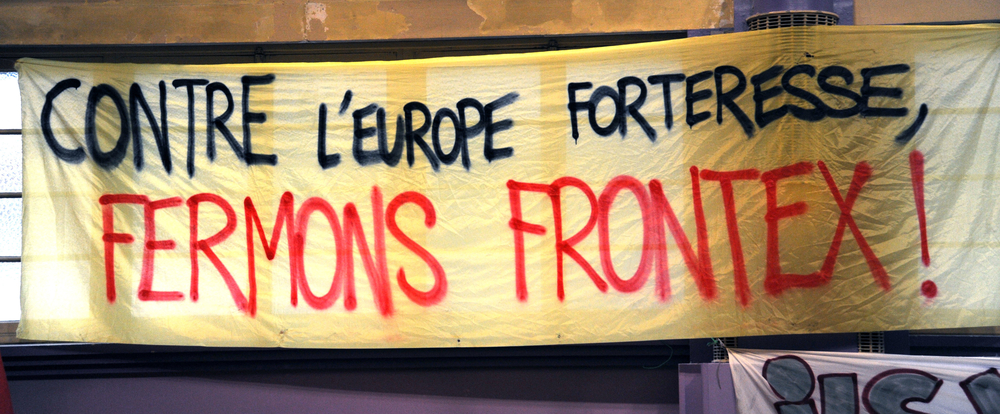 CONTRE L'EUROPE FORTERESSE,
FERMONS FRONTEX !